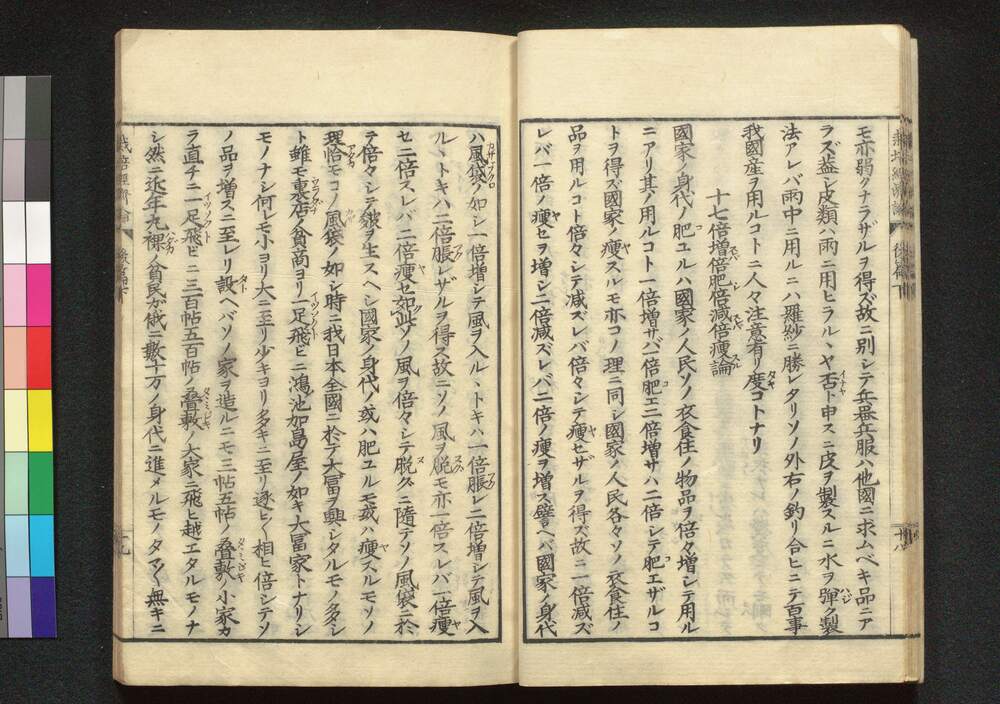 モ亦弱クナラザルヲ得ズ故ニ別シテ兵器兵服ハ他國ニ求ムベキ品ニア
ラズ盖シ皮類ハ雨ニ用ヒラルヽヤ否ト申スニ皮ヲ製スルニ水ヲ彈ク製
法アレバ雨中ニ用ルニハ羅紗ニ勝レタリソノ外右ノ釣リ合ヒニテ百事
我國産ヲ用ルコトニ人々注意有リ度コトナリ
十七倍増倍肥倍減倍瘦論
國家ノ身代ノ肥ユルハ國家ノ人民ソノ衣食住ノ物品ヲ倍々増シテ用ル
ニアリ其ノ用ルコト一倍増サバ一倍肥エ二倍増サハ二倍シテ肥エザルコ
トヲ得ズ國家ノ瘦スルモ亦コノ理ニ同シ國家ノ人民各々ソノ衣食住ノ
品ヲ用ルコト倍々シテ減ズレバ倍々シテ瘦セザルヲ得ズ故ニ一倍減ズ
レバ一倍ノ瘦セヲ増シ二倍減ズレバ二倍ノ瘦ヲ増ス譬ヘバ國家ノ身代
ハ風袋ノ如シ一倍増シテ風ヲ入ルヽトキハ一倍脹レ二倍増シテ風ヲ入
ルヽトキハ二倍脹レザルヲ得ス故ニソノ風ヲ脱モ亦一倍スレバ一倍瘦
セ二倍スレバ二倍瘦セ如此ソノ風ヲ倍々シテ脱クニ隨テソノ風袋ニ於
テ倍々シテ皺ヲ生スヘシ國家ノ身代ノ或ハ肥ユルモ或ハ瘦スルモソノ
理恰モコノ風袋ノ如シ時ニ我日本全國ニ於テ大冨ヲ興シタルモノ多シ
ト雖モ裏店ノ貧商ヨリ一足飛ビニ鴻池加島屋ノ如キ大冨家トナリシ
モノナシ何レモ小ヨリ大ニ至リ少キヨリ多キニ至リ逐ヒ〱相ヒ倍シテソ
ノ品ヲ増スニ至レリ設ヘバソノ家ヲ造ルニモ三帖五帖ノ疊敷ノ小家カ
ラ直チニ一足飛ビニ三百帖五百帖ノ疊敷ノ大家ニ飛ヒ越エタルモノナ
シ然ニ近年丸裸ノ貧民カ俄ニ數十万ノ身代ニ進メルモノタマ〱無キニ
栽培經濟論 後篇下 十九